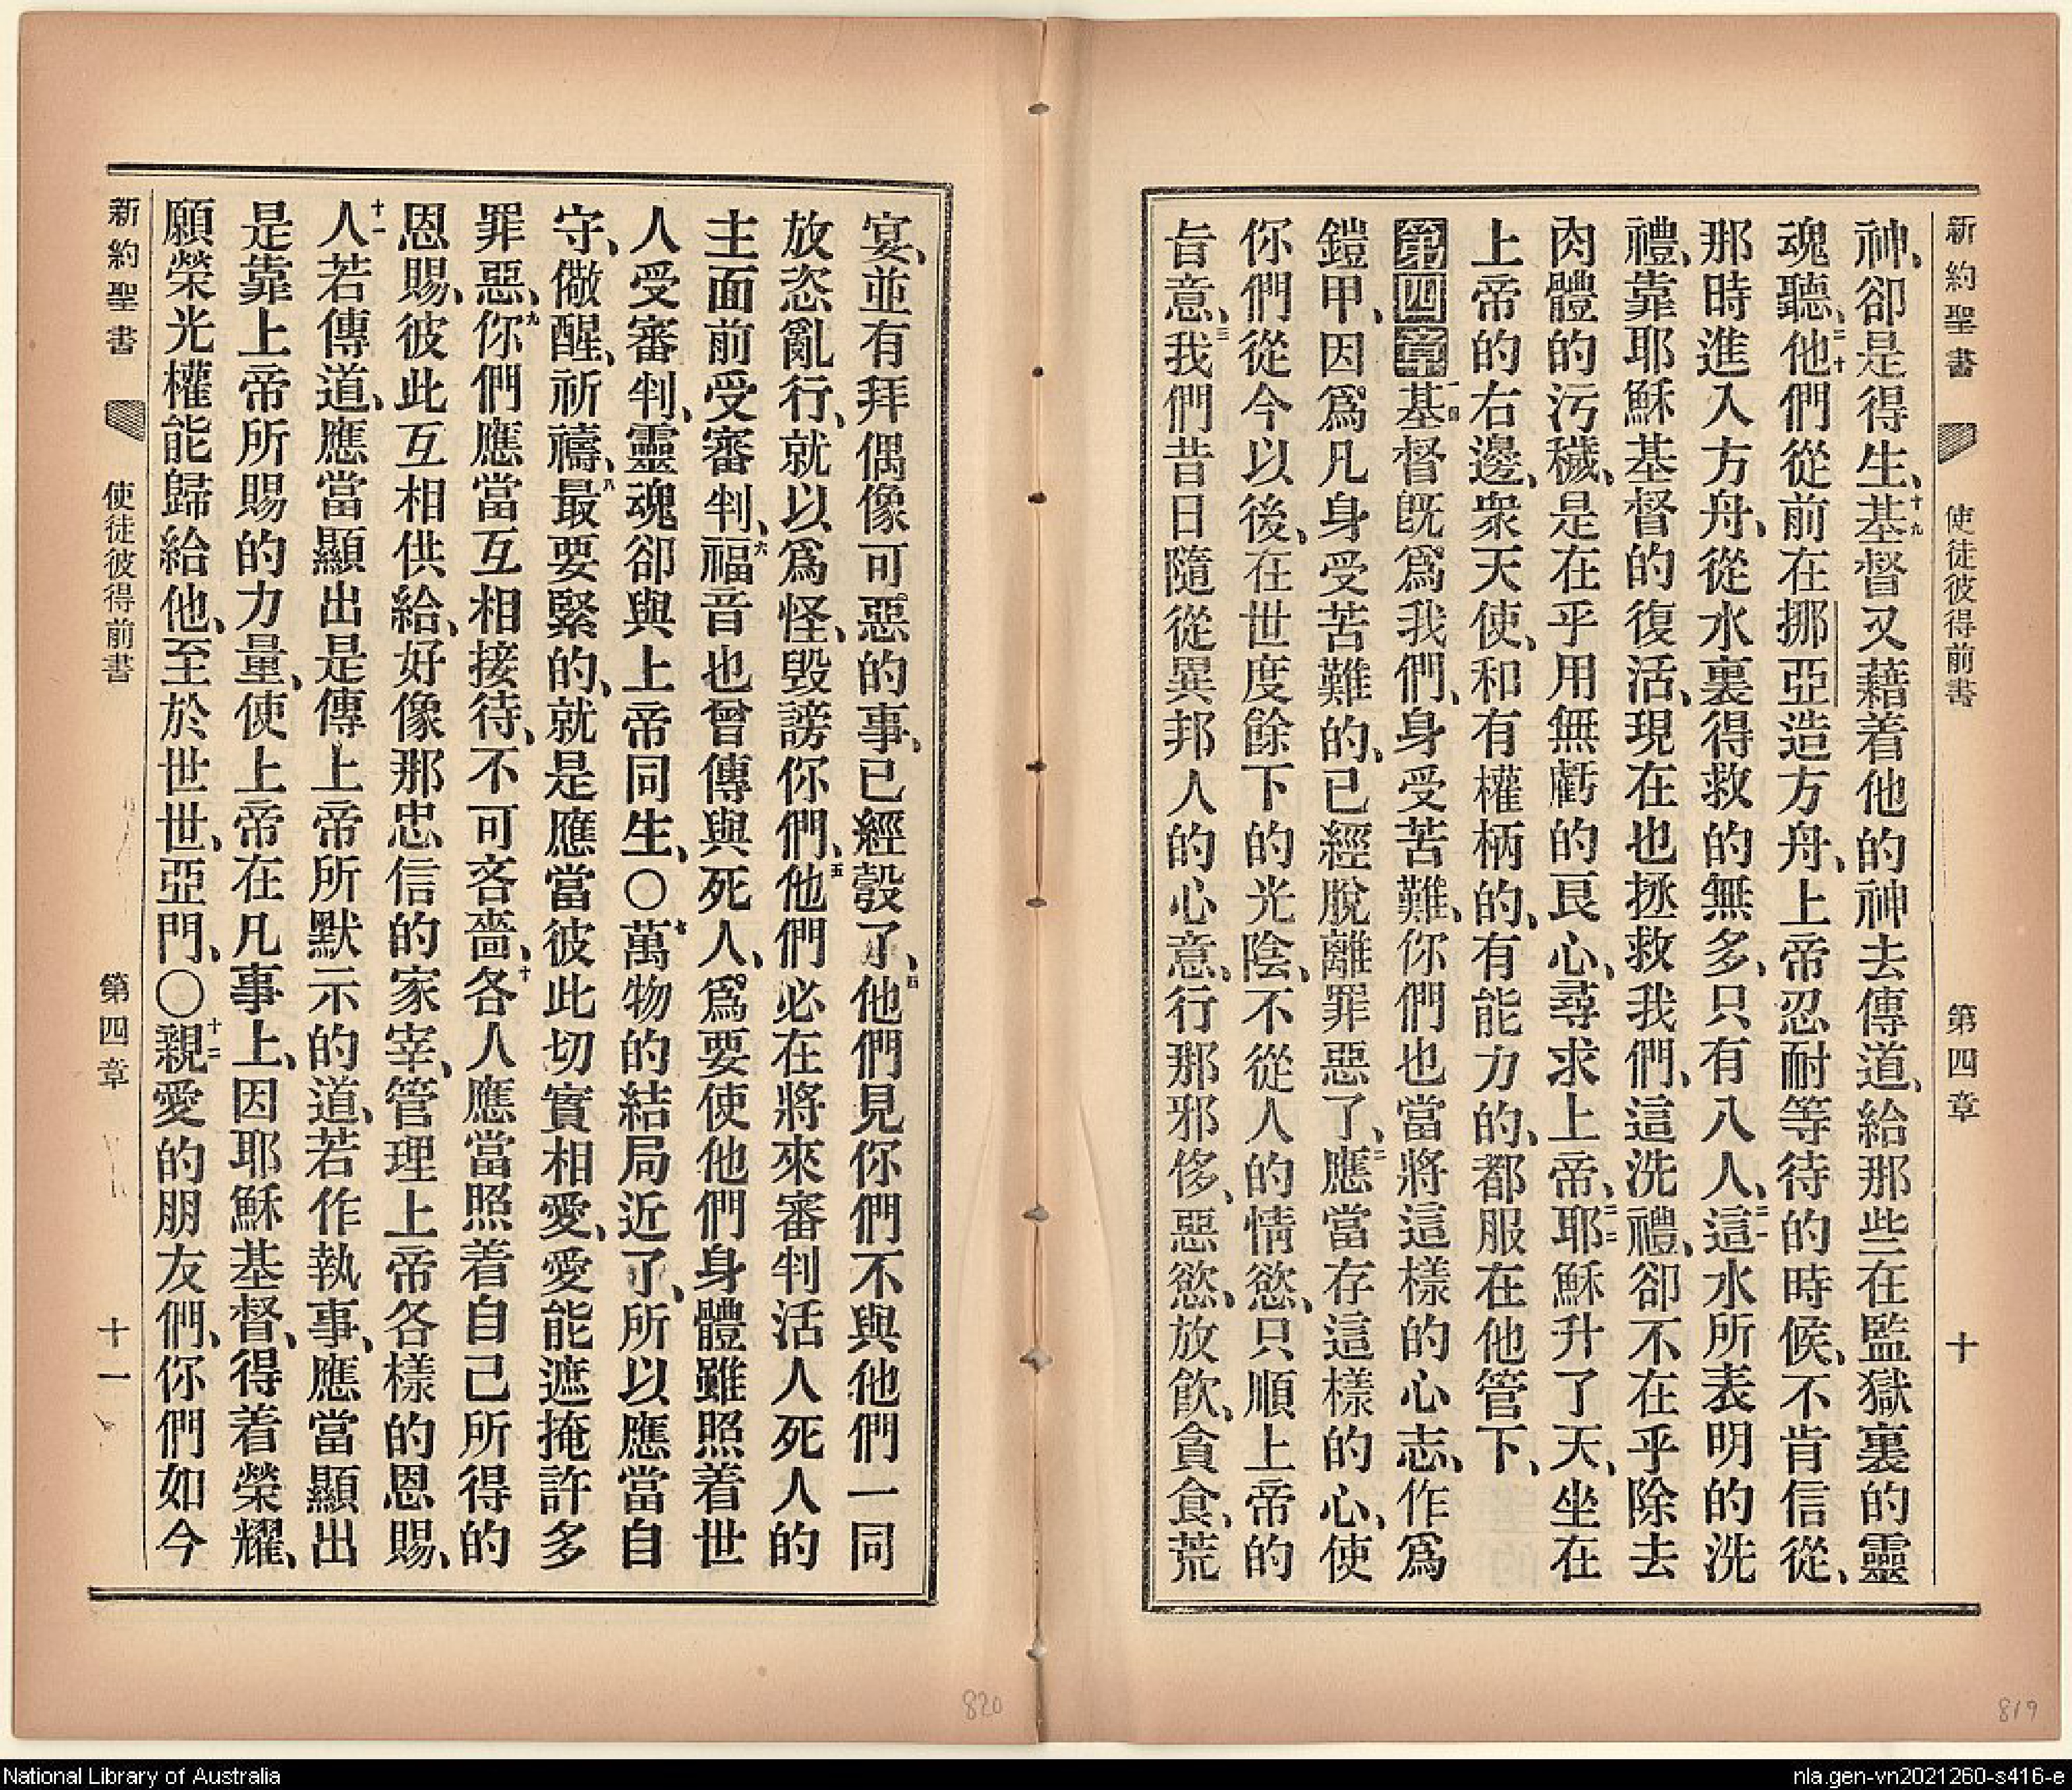 新約聖書 使徒彼得前書 第四章 十
神、卻是得生、十九基督又藉着他的神去傳道、給那些在監獄裏的靈
魂聽、二十他們從前在挪亞造方舟、上帝忍耐等待的時候、不肯信從、
那時進入方舟、從水裏得救的無多、只有八人、二一這水所表明的洗
禮、靠耶穌基督的復活、現在也拯救我們、這洗禮、卻不在乎除去
肉體的污穢、是在乎用無虧的良心、尋求上帝、二二耶穌升了天、坐在
上帝的右邊、衆天使、和有權柄的、有能力的、都服在他管下、
第四章一基督既爲我們、身受苦難、你們也當將這樣的心志、作爲
鎧甲、因爲凡身受苦難的、已經脫離罪惡了、二應當存這樣的心、使
你們從今以後、在世度餘下的光陰、不從人的情慾、只順上帝的
旨意、三我們昔日隨從異邦人的心意、行那邪侈、惡慾、放飲、貪食、荒
宴、並有拜偶像可惡的事、已經彀了、四他們見你們不與他們一同
放恣亂行、就以爲怪、毀謗你們、五他們必在將來審判活人死人的
主面前受審判、六福音也曾傳與死人、爲要使他們身體雖照着世
人受審判、靈魂卻與上帝同生、〇七萬物的結局近了、所以應當自
守、儆醒、祈禱、八最要緊的、就是應當彼此切實相愛、愛能遮掩許多
罪惡、九你們應當互相接待、不可吝嗇、十各人應當照着自己所得的
恩賜、彼此互相供給、好像那忠信的家宰、管理上帝各樣的恩賜、
十一人若傳道、應當顯出是傳上帝所默示的道、若作執事、應當顯出
是靠上帝所賜的力量、使上帝在凡事上、因耶穌基督、得着榮耀、
願榮光權能歸給他、至於世世、亞門、〇十二親愛的朋友們、你們如今
新約聖書 使徒彼得前書 第四章 十一
820
819
National Library of Australia
nla.gen-vn2021260-s416-e